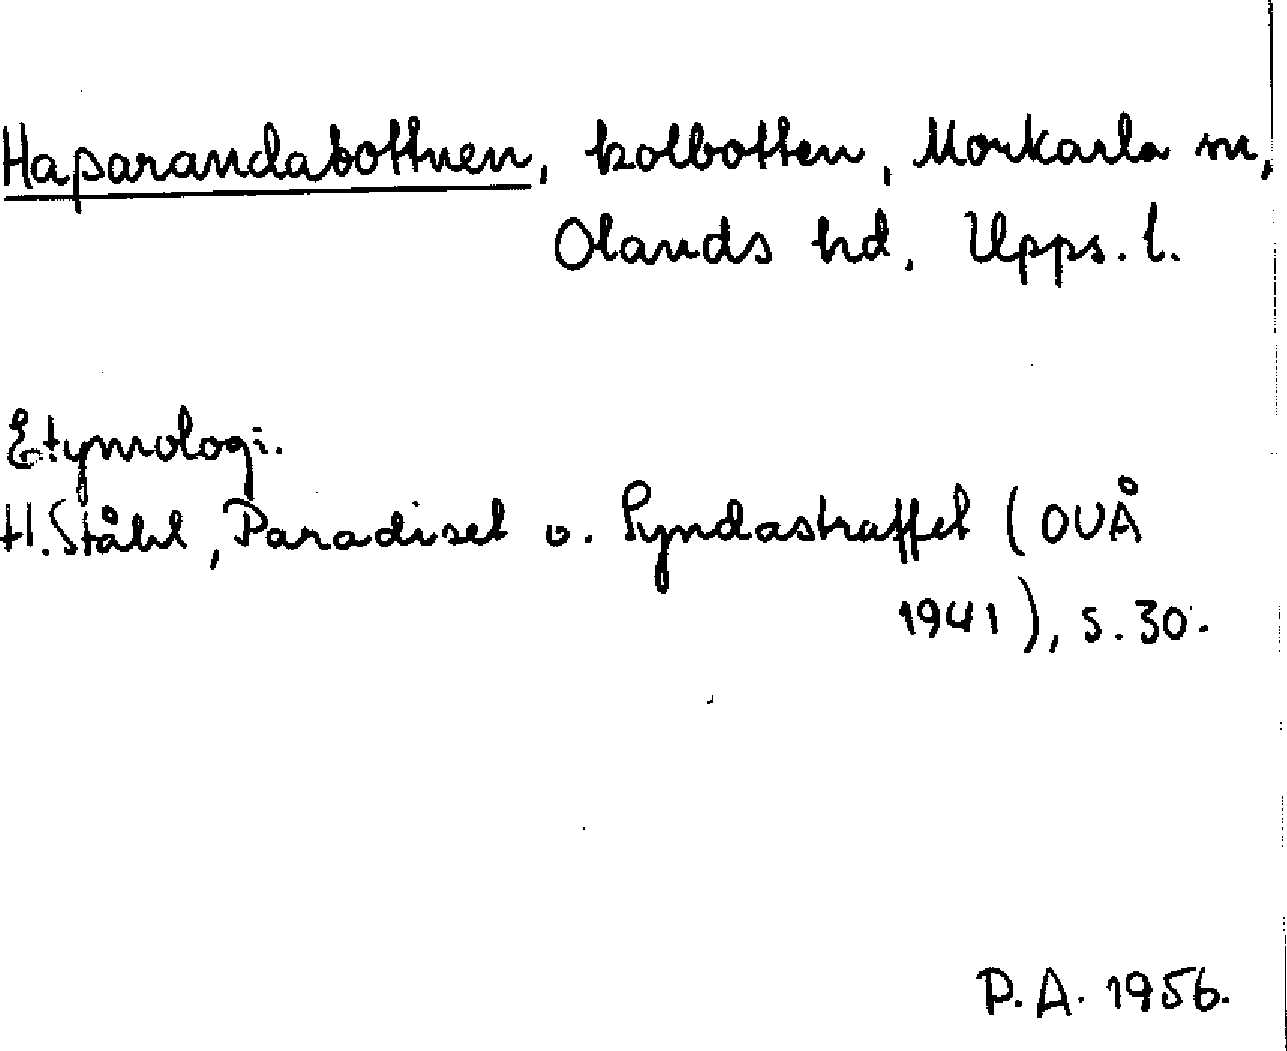 Haparandabottnen, kolbotten, Morkarla sn,
Olands hd, Upps. l.
Etymologi.
H. Ståhl, Paradiset o. Syndastraffet (OUÅ
1941), s. 30.
P. A. 1956.